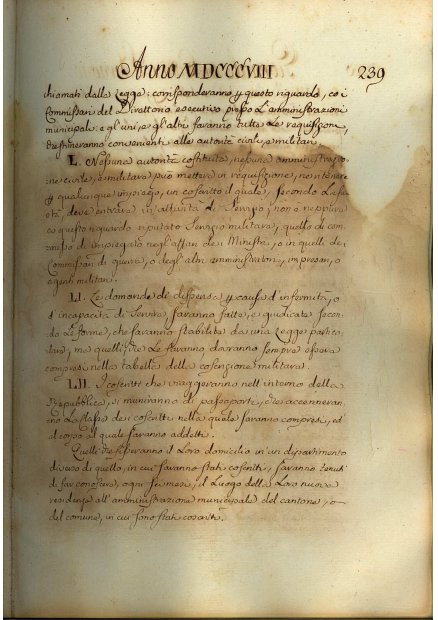 Anno MDCCCCVIII 239
chiamati dalla Legge: corrisponderanno p questo riguardo, co i
Commissari del Direttorio esecutivo presso L'amministrazioni
municipale: e gl'uni, e gl'altri faranno tutte Le requisizioni,
che stimeranno convenienti alle autorità civili, e militari.
L. Nessuna autorità costituita, nessuna amministrazio-
ne civile, e militare può mettere in requisizione, nè ritenere
p qualunque impiego, un coscritto il quale, secondo La sua
età deve entrare in attività di servizio; non è neppure
a questo riguardo reputato servizio militare, quello di com-
messo di impiegato negl'affari dei Ministri, o in quelli dei
Commissari di guerra, o degl'altri amministratori, impresari, o
agenti militari.
LI. Le domande di dispensa p causa d'infermità, o
d'incapacità di servire, saranno fatte, e giudicate secon-
do Le forme, che saranno stabilite da una Legge partico-
lare, ma quelli, che Le faranno dovranno sempre essere
compresi nella tabella della coscrizione militare.
LII. I coscritti che viaggeranno nell'interno della
Repubblica, si muniranno di passaporte, che accenneran-
no La classe dei coscritti nella quale saranno compresi, ed
al corpo al quale saranno addetti.
Quelli che fisseranno il Loro domicilio in un dipartimento
diverso di quello, in cui saranno stati coscritti, saranno tenuti
di far conoscere, ogni sei mesi, il Luogo della Loro nuova
residenza all'amministrazione municipale del cantone, o
del comune, in cui sono stati coscritti.